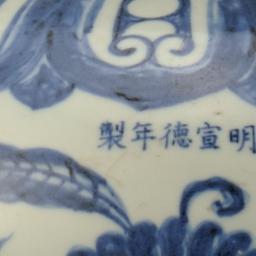 明宣德年製